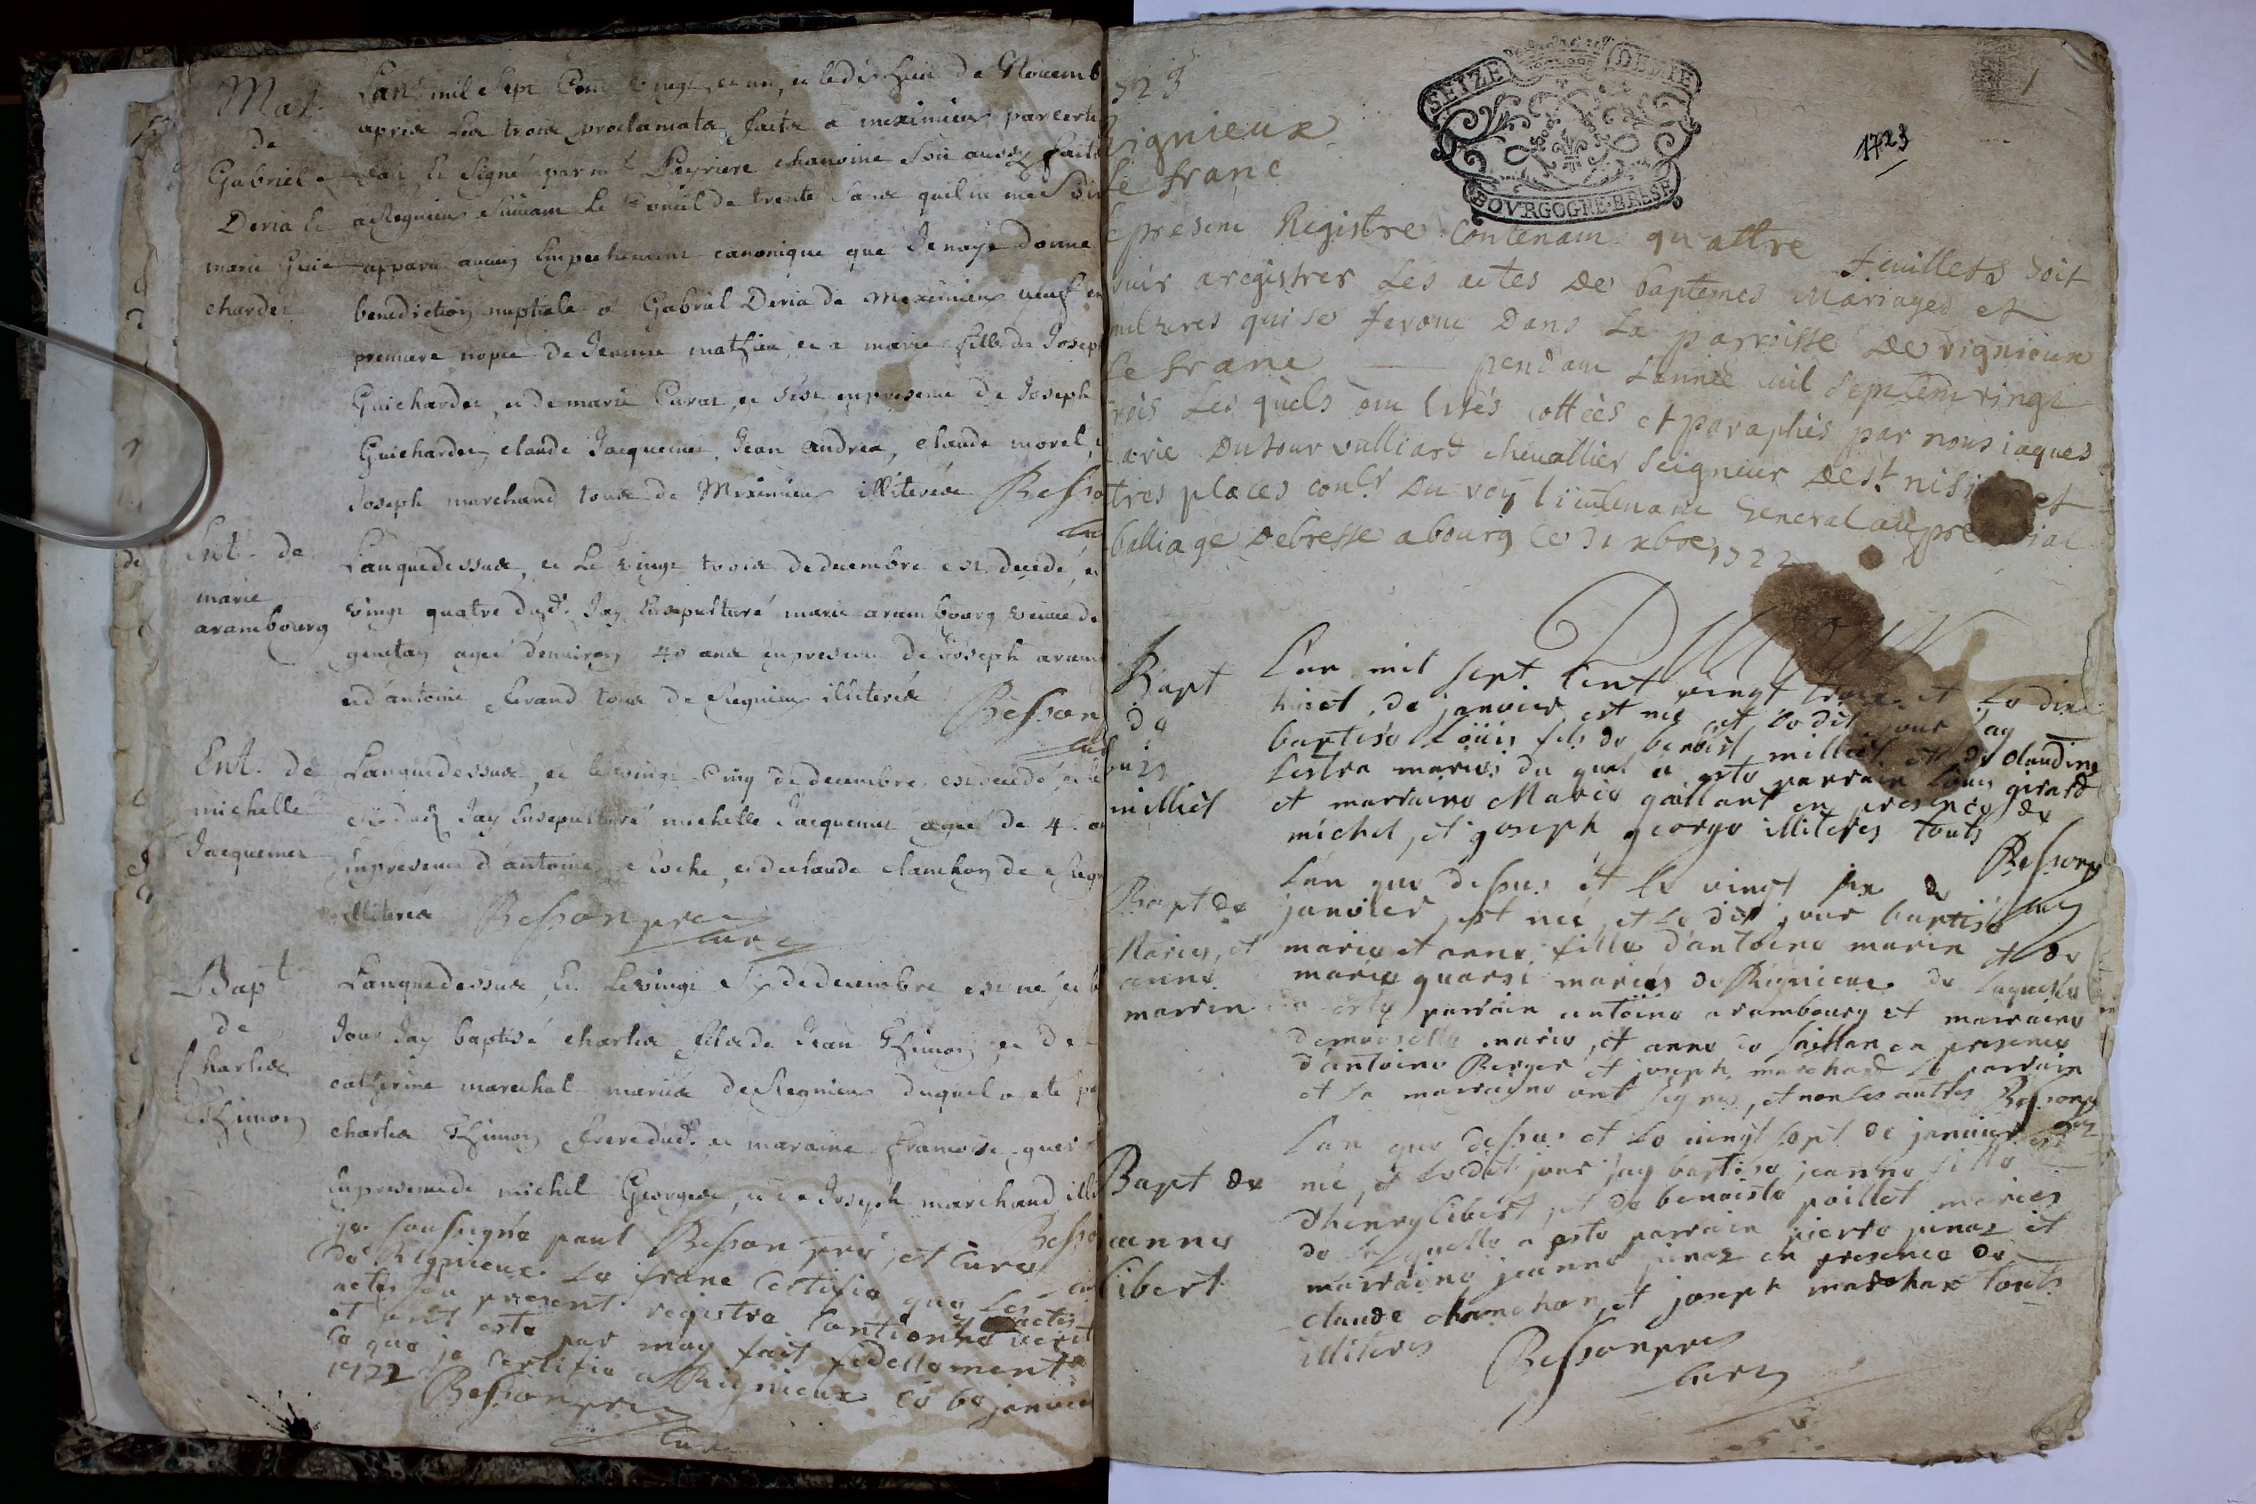 Mar.
de
Gabriel
Deria et
marie Gui
chardet
L'an mil Sept Cent vingt et un, et le dix huit de Novemb
apres Les trois proclamats faits a meximieux par certi
signé par mr Peyriere chanoine soit aussy faits
a Regnieux suivant Le Concil de trente sans quil m'me soit
apparu aucun Empechement canonique que Je naye donné
benediction nuptiale a Gabriel Deria de Meximieux veuf en
premiere nopce de Jeanne mathieu, et a marie fille de Josep
Guichardet, et de marie Curat, et cest en presence de Joseph
Guichardet, claude Jacquemet, Jean andrea, claude morel,
Joseph marchand tous de Meximieux illiterés Besso
Ent. de
marie
arambourg
L'an que dessus, et Le vingt trois de decembre est decedé, et
vingt quatre dud. Jay Ensepulturé marie arambourg veuve de
genetay agée d'environ 40 ans en presence de Joseph aram
et d'antoine Ferand tous de Regnieux illiterés
Besson
curé
Ent. de
michelle
Jacquemet
L'an que dessus, et le vingt Cinq de decembre est decedé, et le
Jay Ensepulturé michelle Jacquemet agée de 4 an
En presence d'antoine Roche, et de claude chanchon de Regn
illiterés Besson pre
curé
Bapt
de
Charles
Thimon
L'an que dessus, Et Le vingt Six de decembre est né, et le
Jour Jay baptisé charles fils de Jean Thimon et de
catherine marechal mariés de Regnieux duquel a eté pa
charles Thimon frere dud. et maraine francoise quer
En presence de michel Georges, et de Joseph marchand illi
Besso
je soussigné paul Besson pre, et curé
de Rignieux le franc Certifie que les
actes au present registre Contient
et ont esté par moy fait fidellement
Ce que je Certifie a Rignieux ce 6e janvie
1722 Besson pre
curé
723
Rignieux
le franc
SEIZE DENIE
BOVRGOGNE·BRESSE
1
1723
Le présent Registre Contenant quattre feuillets doit
servir a regîstrer Les actes De baptêmes Mariages et
sepultures qui se feront Dans La parroisse De rignieux
le franc pendant L'année mil Sept Cent vingt
trois Les quels ont étés cottées et paraphés par nous jaques
marie Dutour vulliard chevallier Seigneur De St. nisi et
autres places conler Du roy lieutenant General au presidial
balliage De bresse a bourg Ce 31 xbre 1722
Bapt
de
louis
milliet
L'an mil sept Cent vingt trois et le dix
huict de janvier est né et le dit jour Jay
baptisé Loüis fils de benoist milliet et de claudine
Lestra mariés du quel a esté parrain Louis girard
et marraine Marie gaillant en presence de
michel, et joseph george illiteres touts
Besson
curé
Bapt de
Maries, et
anne
marrin
L'an que dessus et le vingt six de
janvier est né, et le dit jour baptisé
marie et anne fille d'antoine marin et de
marie quarsi mariés de Rignieux de laquelle
a esté parrain antoine arambourg et marraine
demoiselle marie, et anne de saillan en presence
d'antoine Berger et joseph marchand le parrain
et la marraine ont signés, et non les autres Besson
curé
Bapt de
jeanne
Cibert
L'an que dessus et le vingt sept de janvier est
né, et le dit jour jay baptisé jeanne fille
d'henry Cibert, et de benoiste poillet mariés
de la quelle a esté parrain pierre pinaz et
marraine jeanne pinaz en presence de
claude chanchon, et joseph marchan touts
illiteres Besson pre
curé